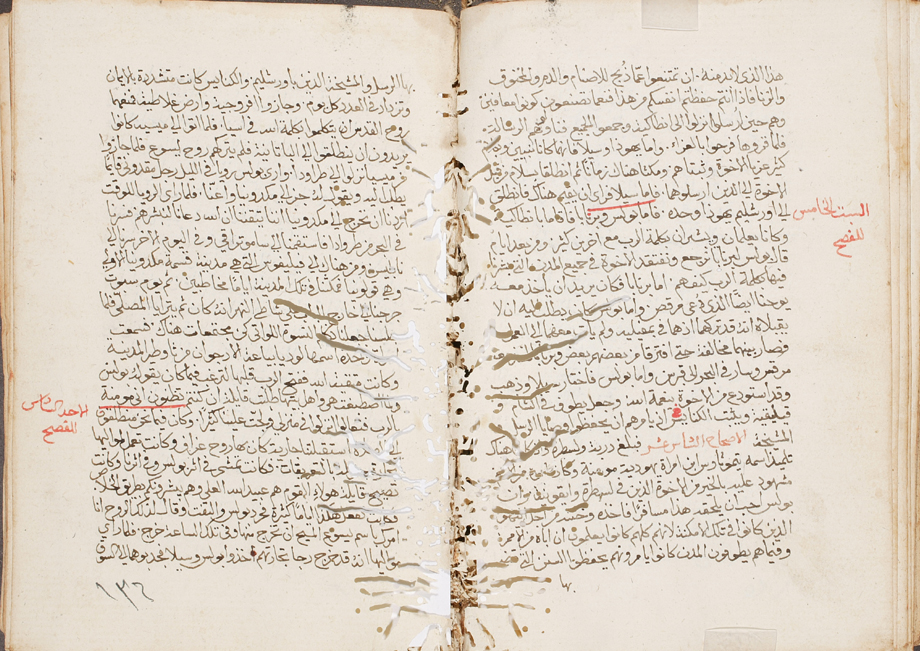 هذا الذي لابد منه ان تمتنعوا عما ذبح للاصنام والدم ومخنوق
والزنا فاذا انتم حفظتم انفسكم من هذا فنعما تصنعون كونوا معافين
وهم حين ارسلوا نزلوا الى انطاكية وجمعوا المجمع فناولوهم الرسالة
فلما قروها فرحوا بالعزاء واما يهوذا وسيلا فانهما كانا نبيين
كثير عزيا الاخوة وثبتاهم ومكثا هناك زمانا ثم انطلقا بسلام من قبل
الاخوة الى الذين ارسلوهما فاما سيلا فراى ان يقيم هناك فانطلق
الى اورشليم يهوذا وحده فاما بولس وبرنابا فاقاما بانطاكية
السبت الخامس
للفصح
وكانا يعلمان ويبشران بكلمة الرب مع اخرين كثير ومن بعد ايام
قال بولس لبرنابا نرجع ونفتقد الاخوة في جميع المدن التي
فيها بكلمة الرب كيف هم اما برنابا فكان يريد ان ياخذ معه
يوحنا ايضا الذي دعي مرقص واما بولس فكان يطلب اليه ان لا
وصار بينهما مخالفة حتى افترقا من بعضهم بعض وبرنابا
مرقص وسار في البحر الى قبرس واما بولس فاختار سيلا وذهب
وقد استودع من الاخوة بنعمة الله وجعل يطوف في الشام و
قيليقية ويثبت الكنايس
المشيخة الاصحاح السادس عشر فبلغ دربه ولسطره وكان هناك
تلميذ اسمه تيموثاوس ابن امراة يهودية مومنة
مشهود عليه بالخير من الاخوة الذين في لسطرة وايقونية
بولس احب ان يصحبه هذا مسافرا فاخذه وختنه من اجل اليهود
الذين كانوا في تلك الامكنة لانهم كلهم كانوا يعلمون ان اباه
وفيما هم يطوفون المدن كانوا يامرونهم يحفظوا السنن التي
بها
بها الرسل والمشيخة الذين باورشليم والكنايس كانت متشددة بالايمان
وتزداد في العدد كل يوم وجازوا افروجية وارض غلاطية فمنعهم
روح القدس ان يتكلموا بكلمة الله في اسيا فلما اتوا الى ميسيه كانوا
يريدون ان ينطلقوا الى البتانية فلم يتركهم روح ليسوع فلما جازوا
من ميسيا نزلوا الى طراوذا وراى بولس رويا في الليل رجل مقدوني قايما
يطلب اليه ويقول له جز الى مكدونيا واعنا فلما راى الرويا للوقت
اردنا ان نخرج الى مكدونيا لاننا تيقنا ان الله دعانا لنبشرهم فسرنا
في البحر من طرواذا فاستقمنا الى ساموتراقي وفي اليوم الاخر سرنا الى
نابلس ومن هناك الى فيليفوس التي هي مدينة قسمة مكدونيا
وهي قولونيا فمكثنا في تلك المدينة اياما مخاطبين ثم يوم سبوت
خرجنا الى خارج المدينة شاطي النهر انه كان ثم يترايا المصلى فلما
جلسنا جعلنا نكلم النسوة اللواتي كن مجتمعات هناك فسمعت
واحدة اسمها لوديا بياعة الارجوان من تاوطير المدينة
وكانت متقية الله ففتح الرب قلبها لترغب فيما كان يقوله بولس
ولما اصطبغت هي واهل بيتها طلبت قايلة ان كنتم تظنون اني مومنة
الاحد السادس
للفصح
بالرب فتعالوا انزلوا في منزلي ولجت علينا كثيرا وكان فيما نحن منطلقون
الى الصلاة استقبلتنا جارية كان بها روح عراف وكانت تعمل لمواليها
فكانت تمشي في اثر بولس وفي اثرنا وكانت
تصيح قايلة هولاء القوم هم عبيد الله العلي وهم يبشرونكم بطريق
وكانت تفعل هكذا اياما كثيرة فحرد بولس والتفت وقال لذلك الروح انا
امرك باسم يسوع المسيح ان تخرج منها وفي تلك الساعة خرج فلما راى
مواليها انه قد خرج رجا تجارتهم اخذوا بولس وسيلا فجذبوهما الى السوق
١٣٦